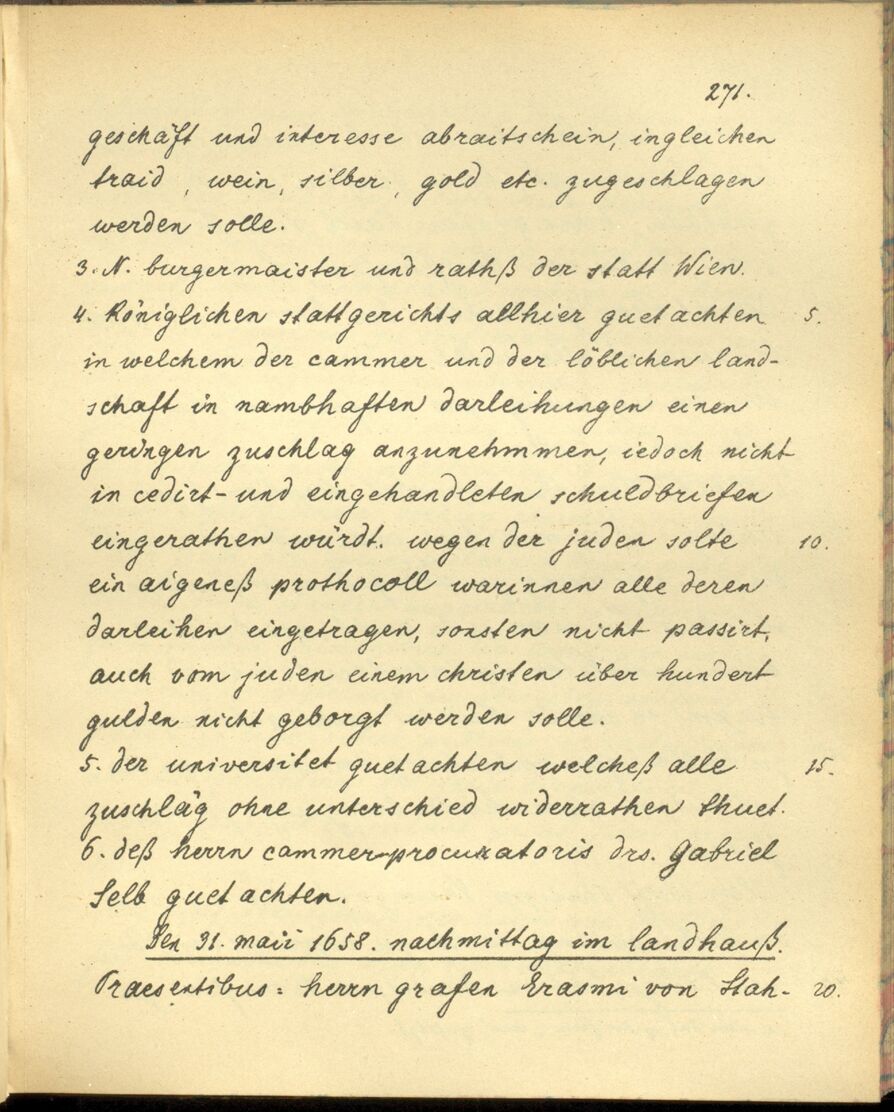 271.
geschäft und interesse abraitschein, ingleichen
traid, wein, silber, gold etc. zugeschlagen
werden solle.
3. N. burgermaister und rathß der statt Wien.
4. Königlichen stattgerichts allhier guetachten 5.
in welchem der cammer und der löblichen land-
schaft in nambhaften darleihungen einen
geringen zuschlag anzunehmmen, iedoch nicht
in cedirt- und eingehandleten schuldbriefen
eingerathen würdt. wegen der juden solte 10.
ein aigeneß prothocoll warinnen alle deren
darleihen eingetragen, sonsten nicht passirt,
auch vom juden einem christen über hundert
gulden nicht geborgt werden solle.
5. der universitet guetachten welcheß alle 15.
zuschläg ohne unterschied widerrathen thuet.
6. deß herrn cammer-procuratoris drs. Gabriel
Selb guetachten.
Den 31. maii 1658. nachmittag im landhauß.
Praesentibus: herrn grafen Erasmi von Stah- 20.